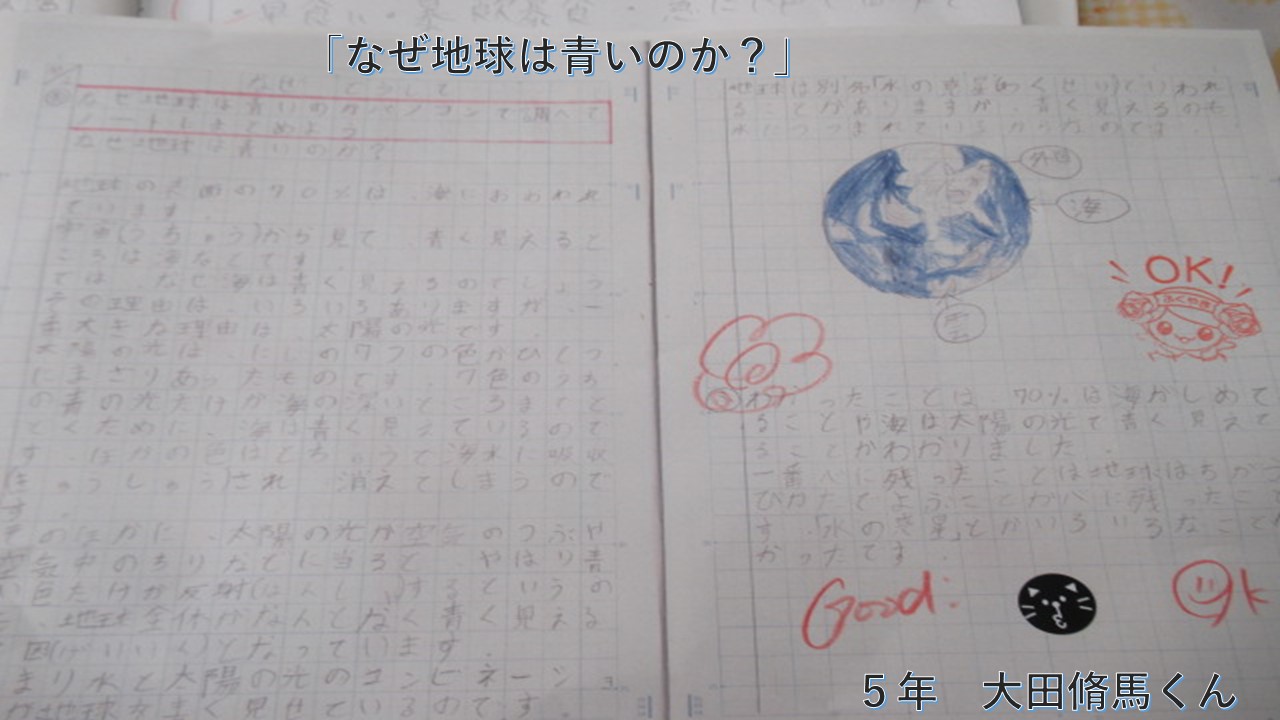 「なぜ地球は青いのか？」
なぜ地球は青いのかパソコンで調べて
ノートにまとめよう
なぜ地球は青いのか？
地球の表面の70％は、海におおわれ
ています。
宇宙(うちゅう)から見て、青く見えると
ころは海なんです。
では、なぜ海は青く見えるのでしょう
その理由は、いろいろありますが、一
番大きな理由は、太陽の光です。
太陽の光は、にじの7つの色がひとつ
にまざりあったものです。7色のうち
の青の光だけが海の深いところまでと
どくために、海は青く見えているので
す。ほかの色はとちゅうで海水に吸収
(きゅうしゅう)され、消えてしまうので
す。
そのほかに、太陽の光が空気のつぶや
空気中のちりなどに当ると、やはり青
い色だけが反射(はんしゃ)するというの
も、地球全体がなんとなく青く見える
因(げいいん)となっています。
まり水と太陽の光のコンビネーシ
が地球を青く見せているのです。
地球は別名「水の惑星(わくせい)」といわれ
ることがありますが、青く見えるのも
水につつまれているからなのです。
外国
海
雲
OK!
ふくやま
わかったことは、70％は海がしめて
ることや海は太陽の光で青く見えて
ることがわかりました。
一番心に残ったことは地球はちがう
びかたでよぶことが心に残ったこ
す。「水の惑星」とかいろいろなことが
かったです。
Good!
Ok
５年　大田脩馬くん